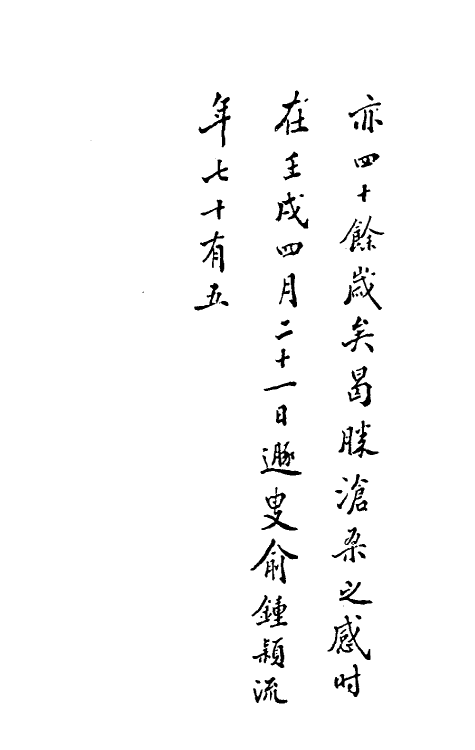 亦四十餘歲矣曷勝滄桑之感时
在壬戌四月二十一日遯叟俞鍾穎流
年七十有五